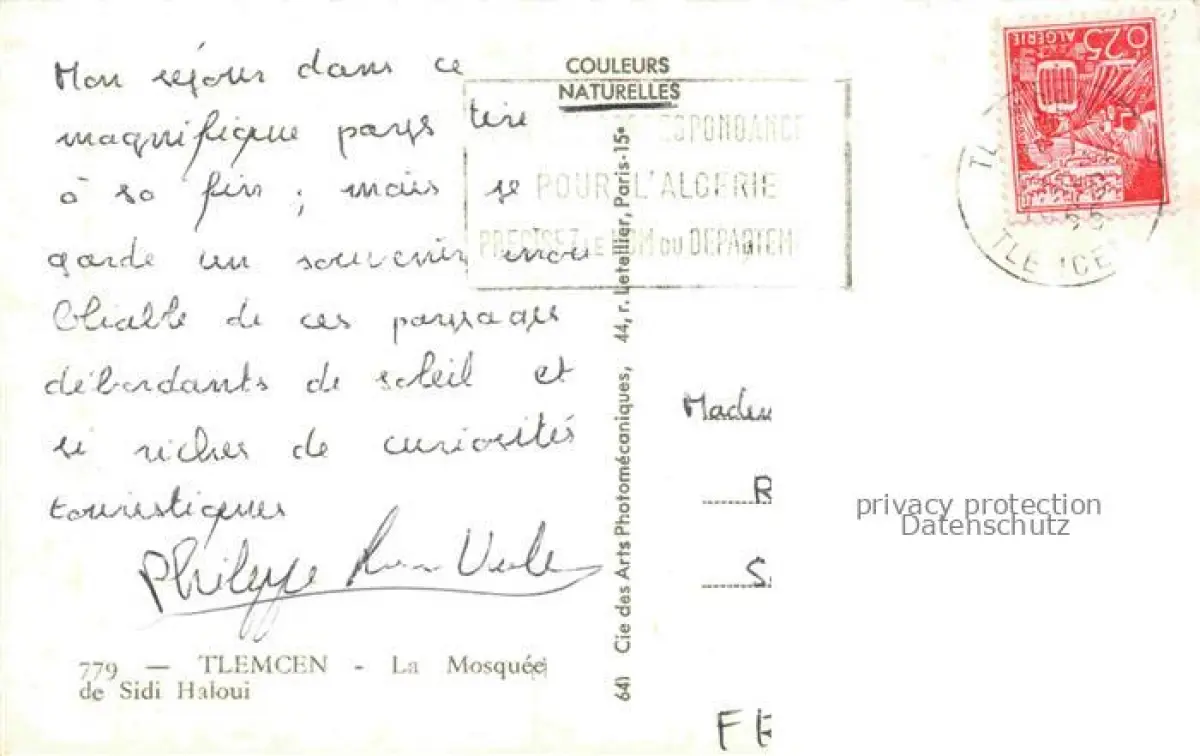 Mon séjour dans ce
magnifique pays tire
à sa fin ; mais je
garde un souvenir inou
bliable de ces paysages
débordants de soleil et
si riches de curiosités
touristiques
Philippe
779 — TLEMCEN - La Mosquée
de Sidi Haloui
COULEURS
NATURELLES
64) Cie des Arts Photomécaniques, 44, r. Letellier, Paris-15e
CORRESPONDANCE
POUR L'ALGERIE
PRECISEZ LE NOM DU DEPARTEM
0,25
ALGÉRIE
TLEMCEN
Madem
R
S
FE
privacy protection
Datenschutz